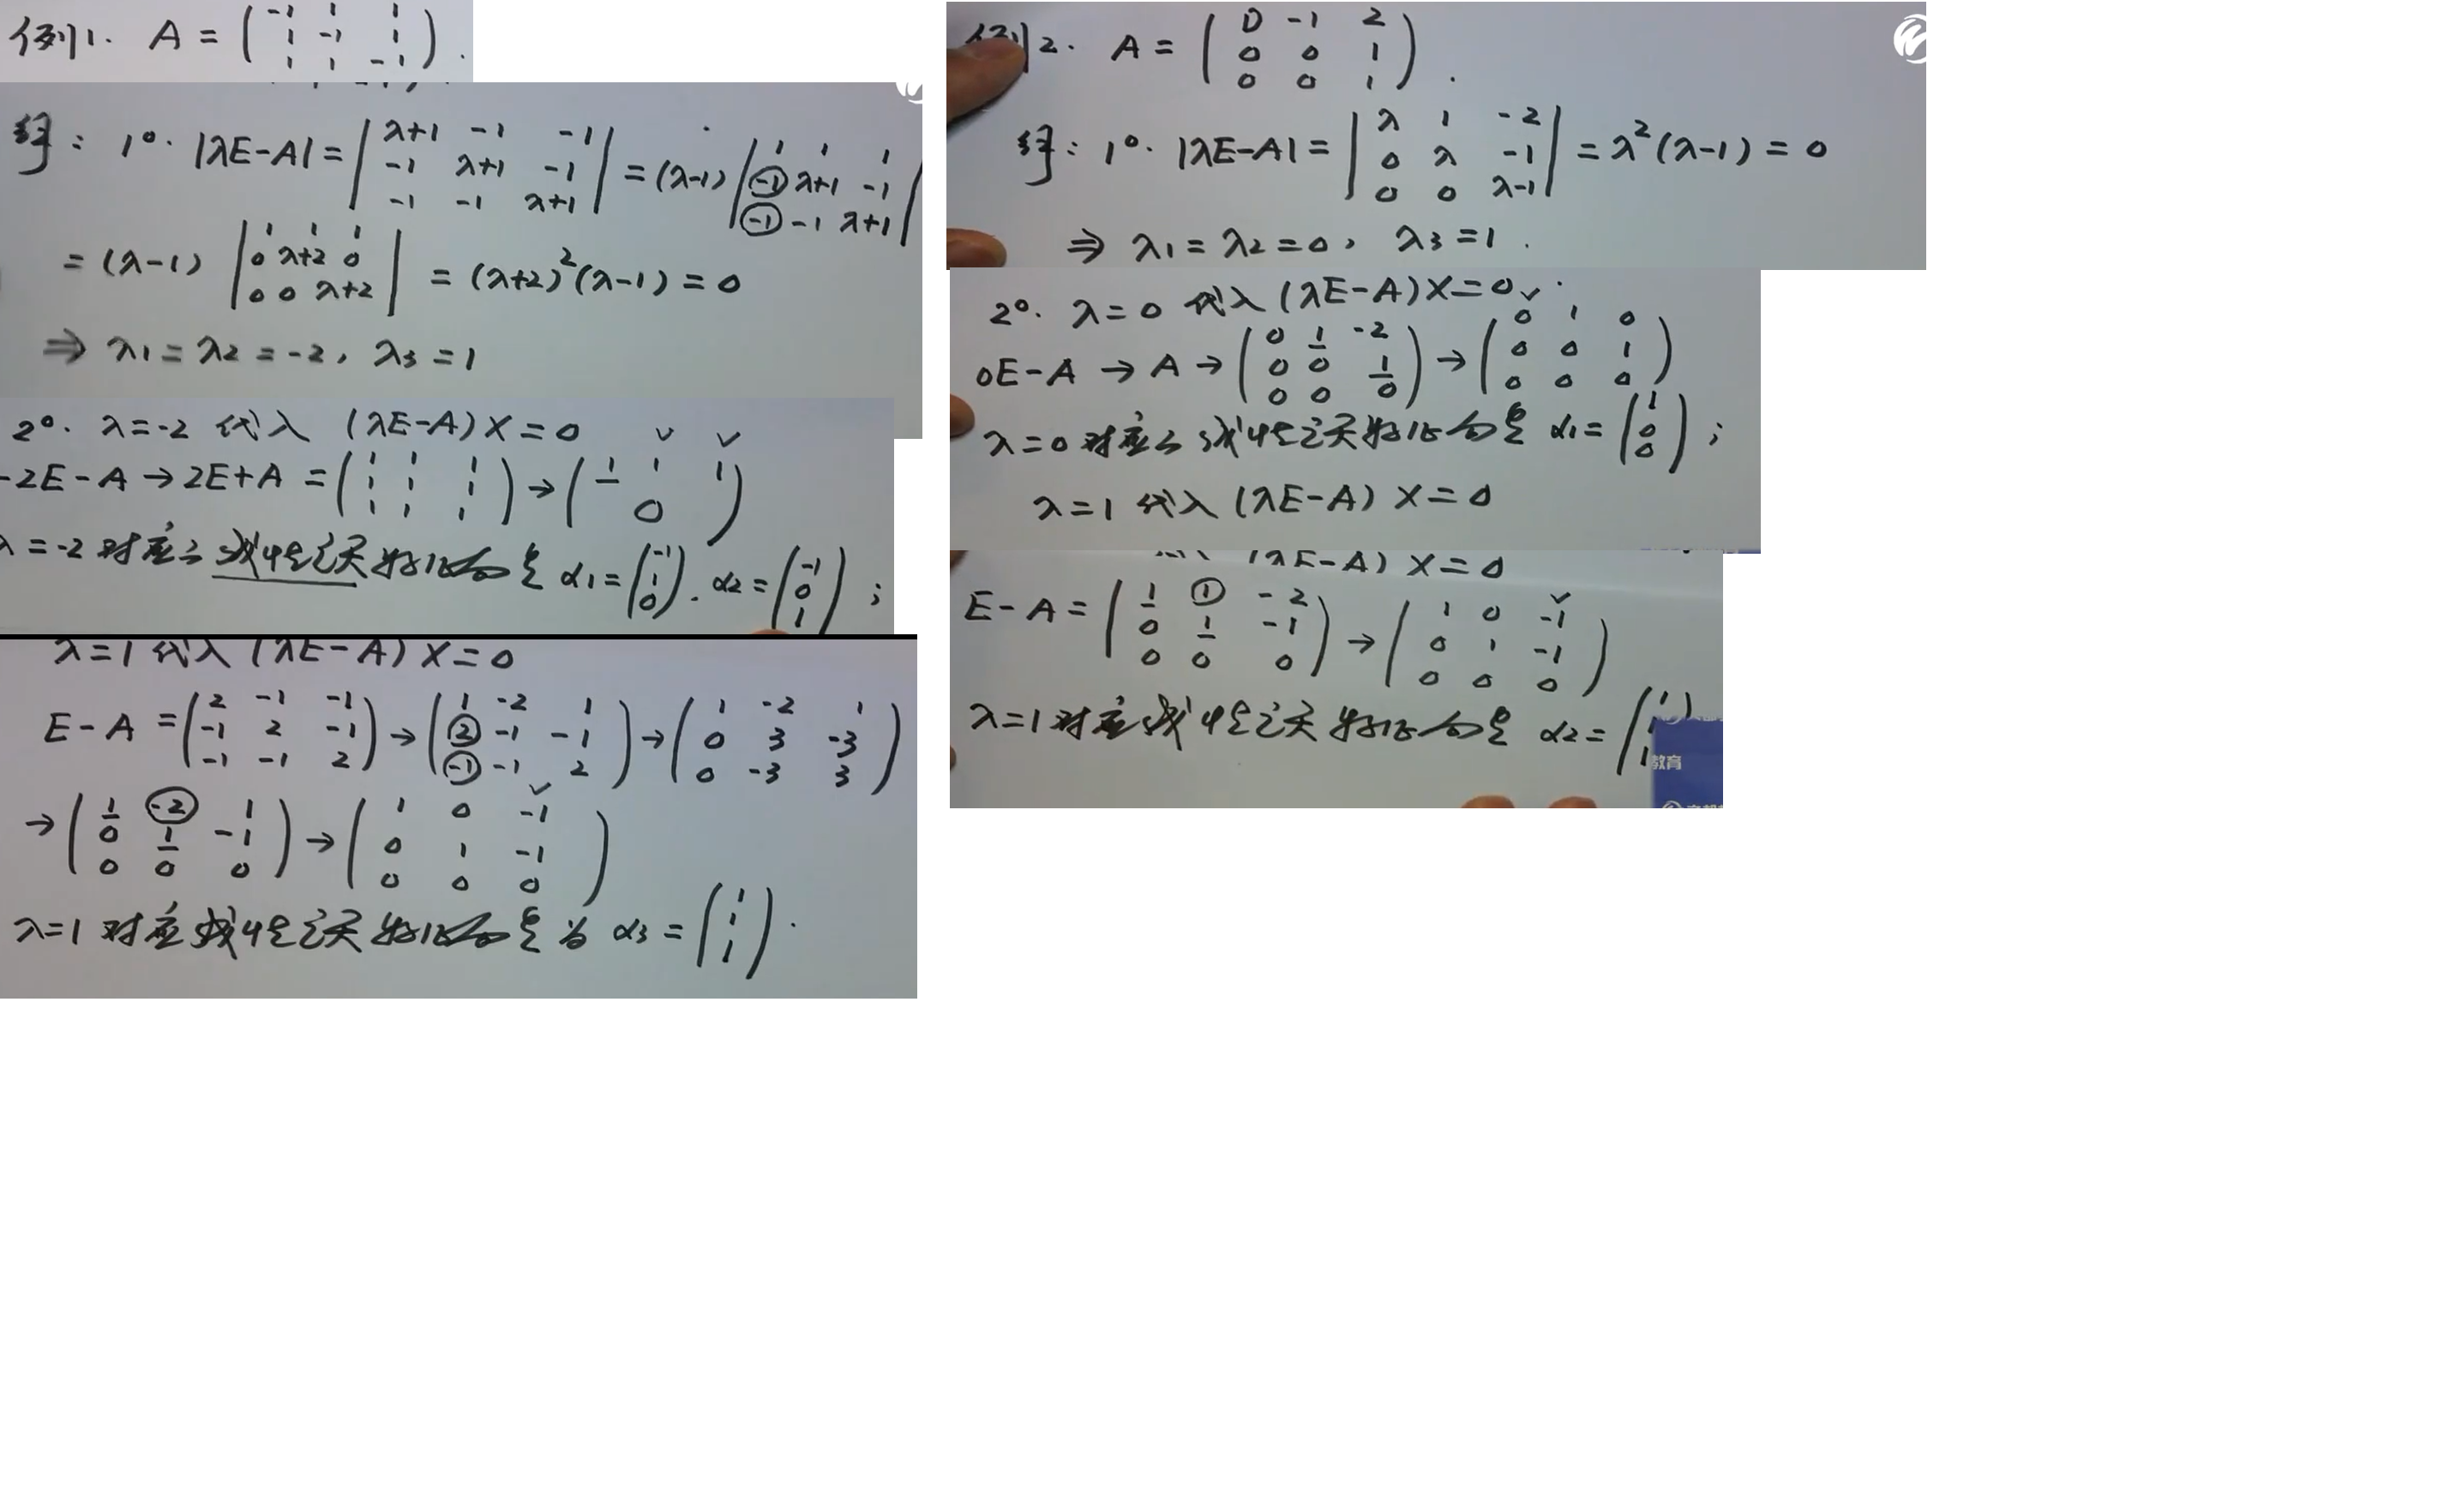 例1. A = ( -1 1 1
1 -1 1
1 1 -1 ).
解: 1°. |λE-A| = | λ+1 -1 -1
-1 λ+1 -1
-1 -1 λ+1 | = (λ-1) | 1 1 1
-1 λ+1 -1
-1 -1 λ+1 |
= (λ-1) | 1 1 1
0 λ+2 0
0 0 λ+2 | = (λ+2)²(λ-1) = 0
⇒ λ1 = λ2 = -2, λ3 = 1
2°. λ=-2 代入 (λE-A)X=0
-2E-A → 2E+A = ( 1 1 1
1 1 1
1 1 1 ) → ( 1 1 1
0 )
λ=-2 对应之线性无关特征向量 α1 = ( -1
1
0 ). α2 = ( -1
0
1 ) ;
λ=1 代入 (λE-A)X=0
E-A = ( 2 -1 -1
-1 2 -1
-1 -1 2 ) → ( 1 -2 1
2 -1 -1
-1 -1 2 ) → ( 1 -2 1
0 3 -3
0 -3 3 )
→ ( 1 -2 1
0 1 -1
0 0 0 ) → ( 1 0 -1
0 1 -1
0 0 0 )
λ=1 对应线性无关特征向量为 α3 = ( 1
1
1 ).
例2. A = ( 0 -1 2
0 0 1
0 0 1 ).
解: 1°. |λE-A| = | λ 1 -2
0 λ -1
0 0 λ-1 | = λ²(λ-1) = 0
⇒ λ1 = λ2 = 0, λ3 = 1.
2°. λ=0 代入 (λE-A)X=0
0E-A → A → ( 0 1 -2
0 0 1
0 0 0 ) → ( 0 1 0
0 0 1
0 0 0 )
λ=0 对应之线性无关特征向量 α1 = ( 1
0
0 ) ;
λ=1 代入 (λE-A)X=0
(λE-A)X=0
E-A = ( 1 1 -2
0 1 -1
0 0 0 ) → ( 1 0 -1
0 1 -1
0 0 0 )
λ=1 对应线性无关特征向量 α2 = ( 1
1
1 )
教育